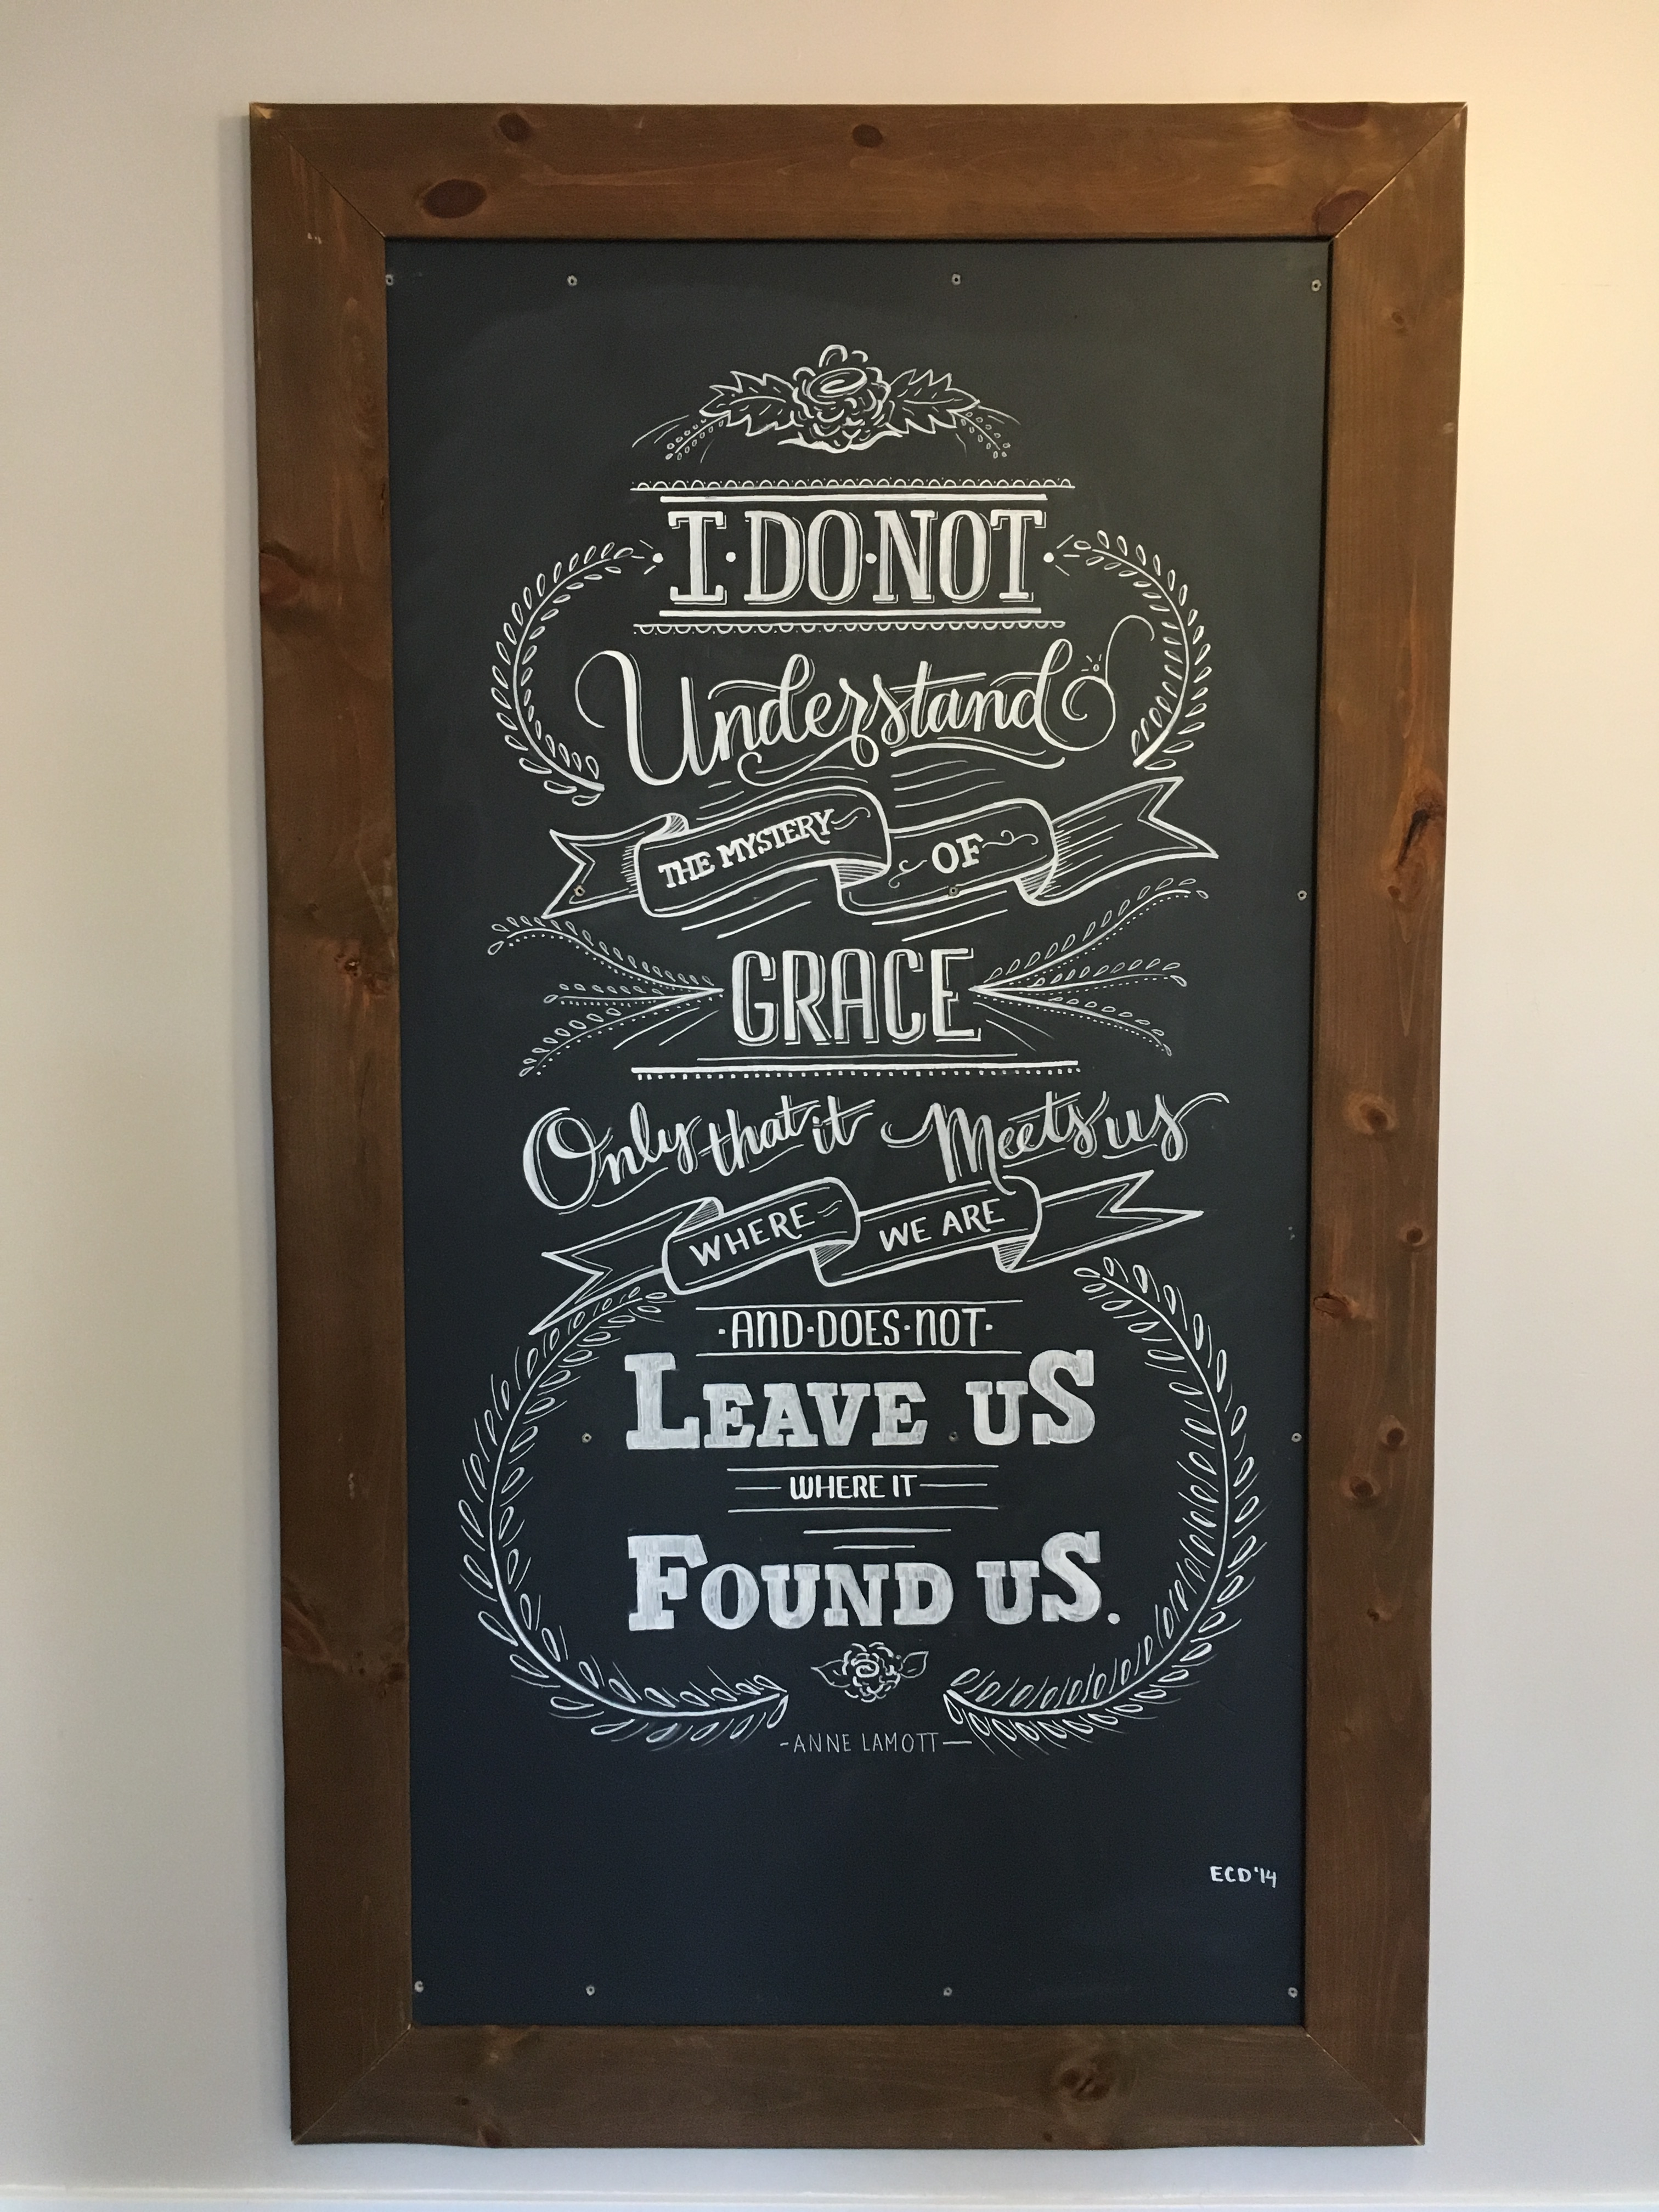 I·DO·NOT
Understand
THE MYSTERY OF
GRACE
Only that it Meets us
WHERE WE ARE
·AND·DOES·NOT·
LEAVE US
WHERE IT
FOUND US.
-ANNE LAMOTT—
ECD '14